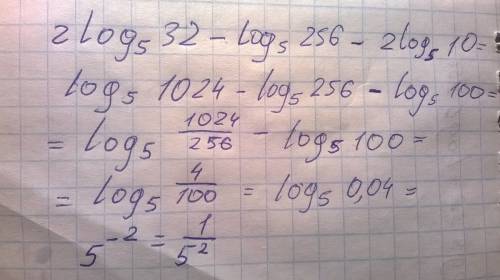 2 log₅ 32 - log₅ 256 - 2 log₅ 10 =
log₅ 1024 - log₅ 256 - log₅ 100 =
= log₅ 1024/256 - log₅ 100 =
= log₅ 4/100 = log₅ 0,04 =
5⁻² = 1/5²